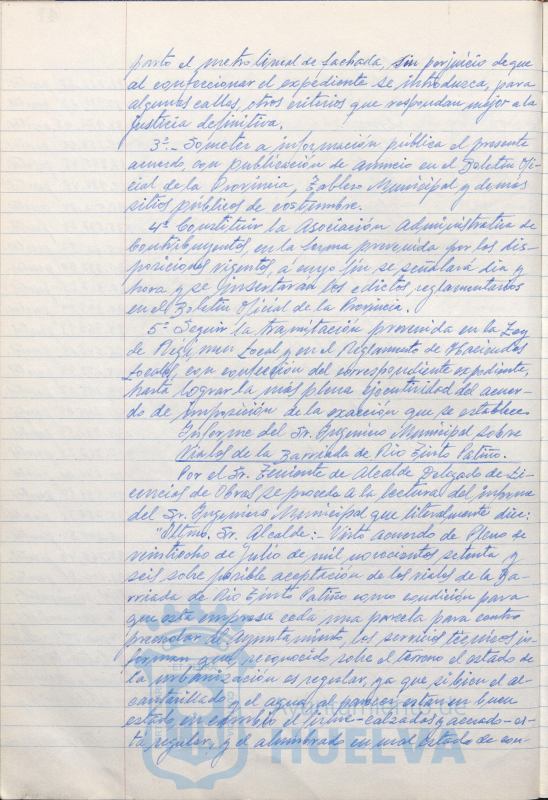 parto el metro lineal de fachada, sin perjuicio de que
al confeccionar el expediente se introduzca, para
algunas calles, otros criterios que respondan mejor a la
justicia definitiva.
3º.- Someter a información pública el presente
acuerdo, con publicación de anuncio en el Boletín Ofi-
cial de la Provincia, Tablero Municipal y demás
sitios públicos de costumbre.
4º Constituir la Asociación Administrativa de
Contribuyentes, en la forma prevenida por las dis-
posiciones vigentes, a cuyo fin se señalará día y
hora y se insertarán los edictos reglamentarios
en el Boletín Oficial de la Provincia.
5º Seguir la tramitación prevenida en la Ley
de Régimen Local y en el Reglamento de Haciendas
Locales, con confección del correspondiente expediente,
hasta lograr la más plena ejecutividad del acuer-
do de imposición de la exacción que se establece.
Informe del Sr. Ingeniero Municipal sobre
Viales de la Barriada de Río Tinto Patiño.
Por el Sr. Teniente de Alcalde Delegado de Li-
cencias de Obras se procede a la lectura del informe
del Sr. Ingeniero Municipal que literalmente dice:
"Iltmo. Sr. Alcalde:- Visto acuerdo de Pleno de
veintiocho de Julio de mil novecientos setenta y
seis sobre posible aceptación de los viales de la Ba-
rriada de Río Tinto Patiño como condición para
que esta empresa ceda una parcela para centro
preescolar al Ayuntamiento, los servicios técnicos in-
forman que, reconocido sobre el terreno el estado de
la urbanización es regular, ya que si bien el al-
cantarillado y el agua, al parecer, están en buen
estado, en cambio el firme-calzadas y acerado-es-
tá regular, y el alumbrado en mal estado de con-
HUELVA